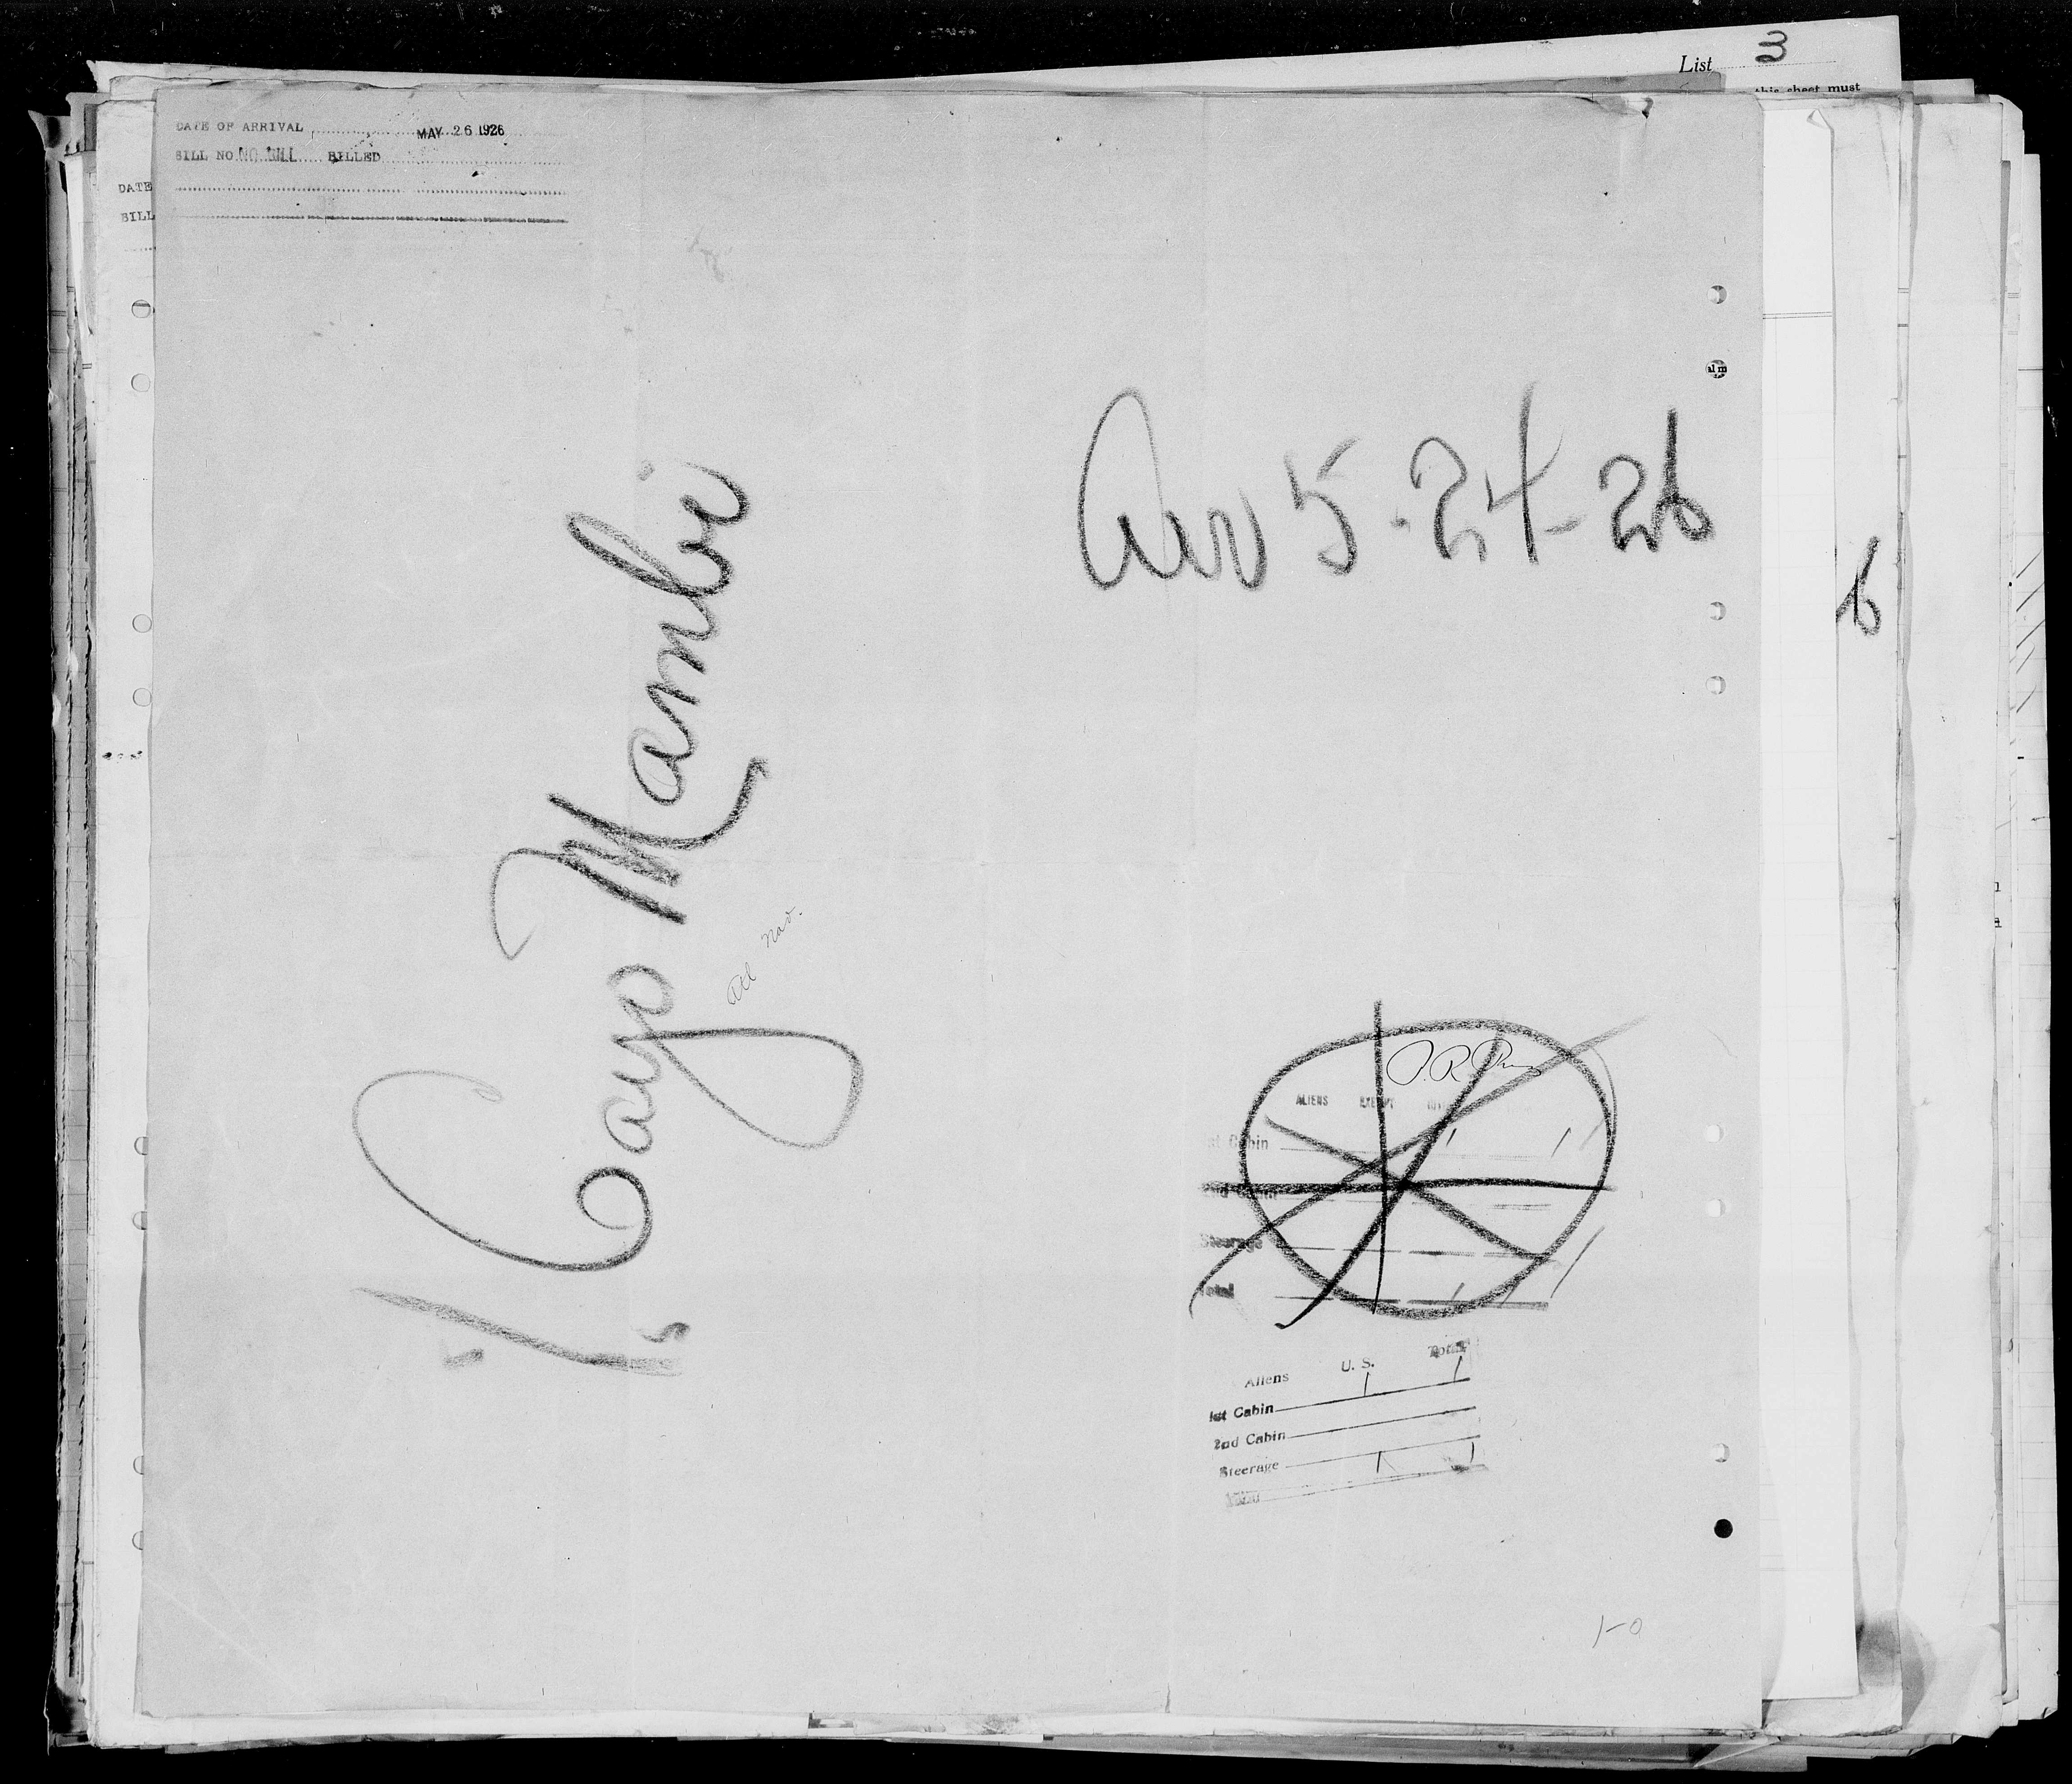 List 3
this sheet must
DATE OF ARRIVAL MAY 26 1926
BILL NO. NO BILL BILLED
DATE
BILL
Arr 5-24-26
6
Cayo Mambi
ALIENS EXEMPT
1st Cabin / /
2nd Cabin
Steerage /
Total / / /
Aliens U. S. Total
1st Cabin / /
2nd Cabin
Steerage / /
1-0